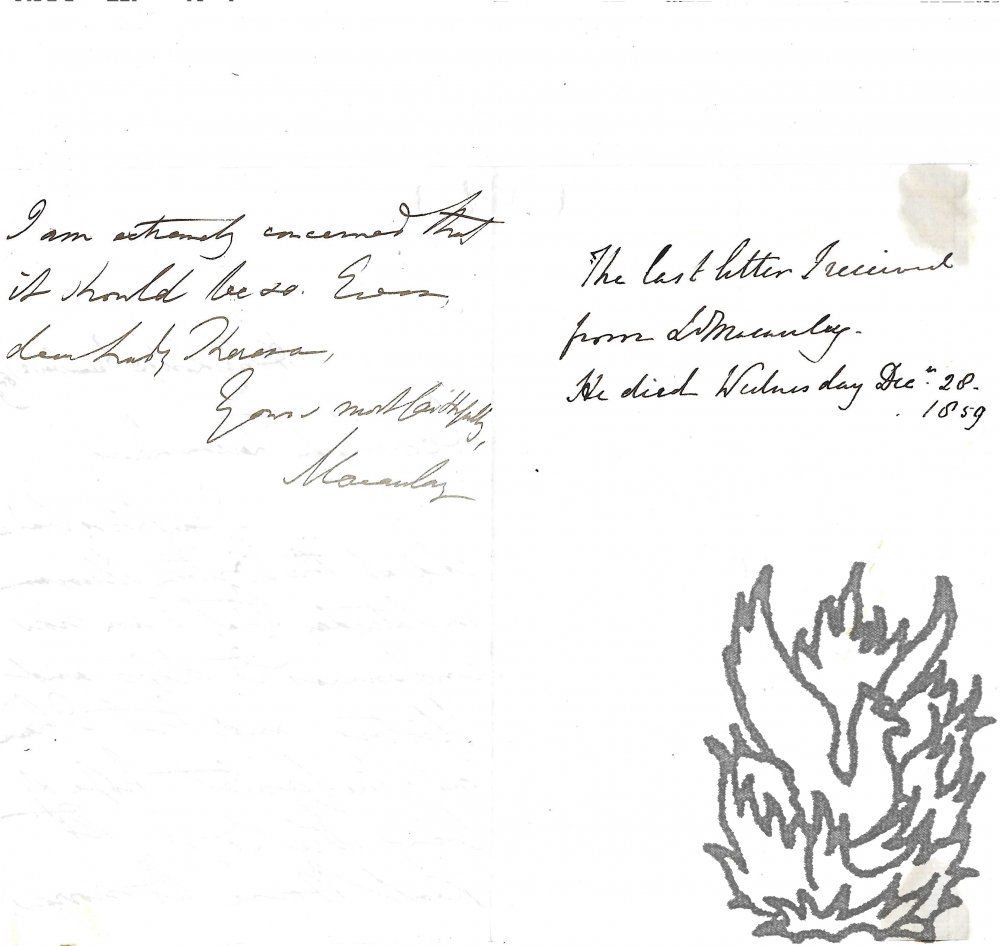 I am extremely concerned that
it should be so. Ever,
dear Lady Theresa,
Yours most faithfully,
Macaulay
The last letter I received
from Ld Macaulay.
He died Wednesday Decr. 28.
1859